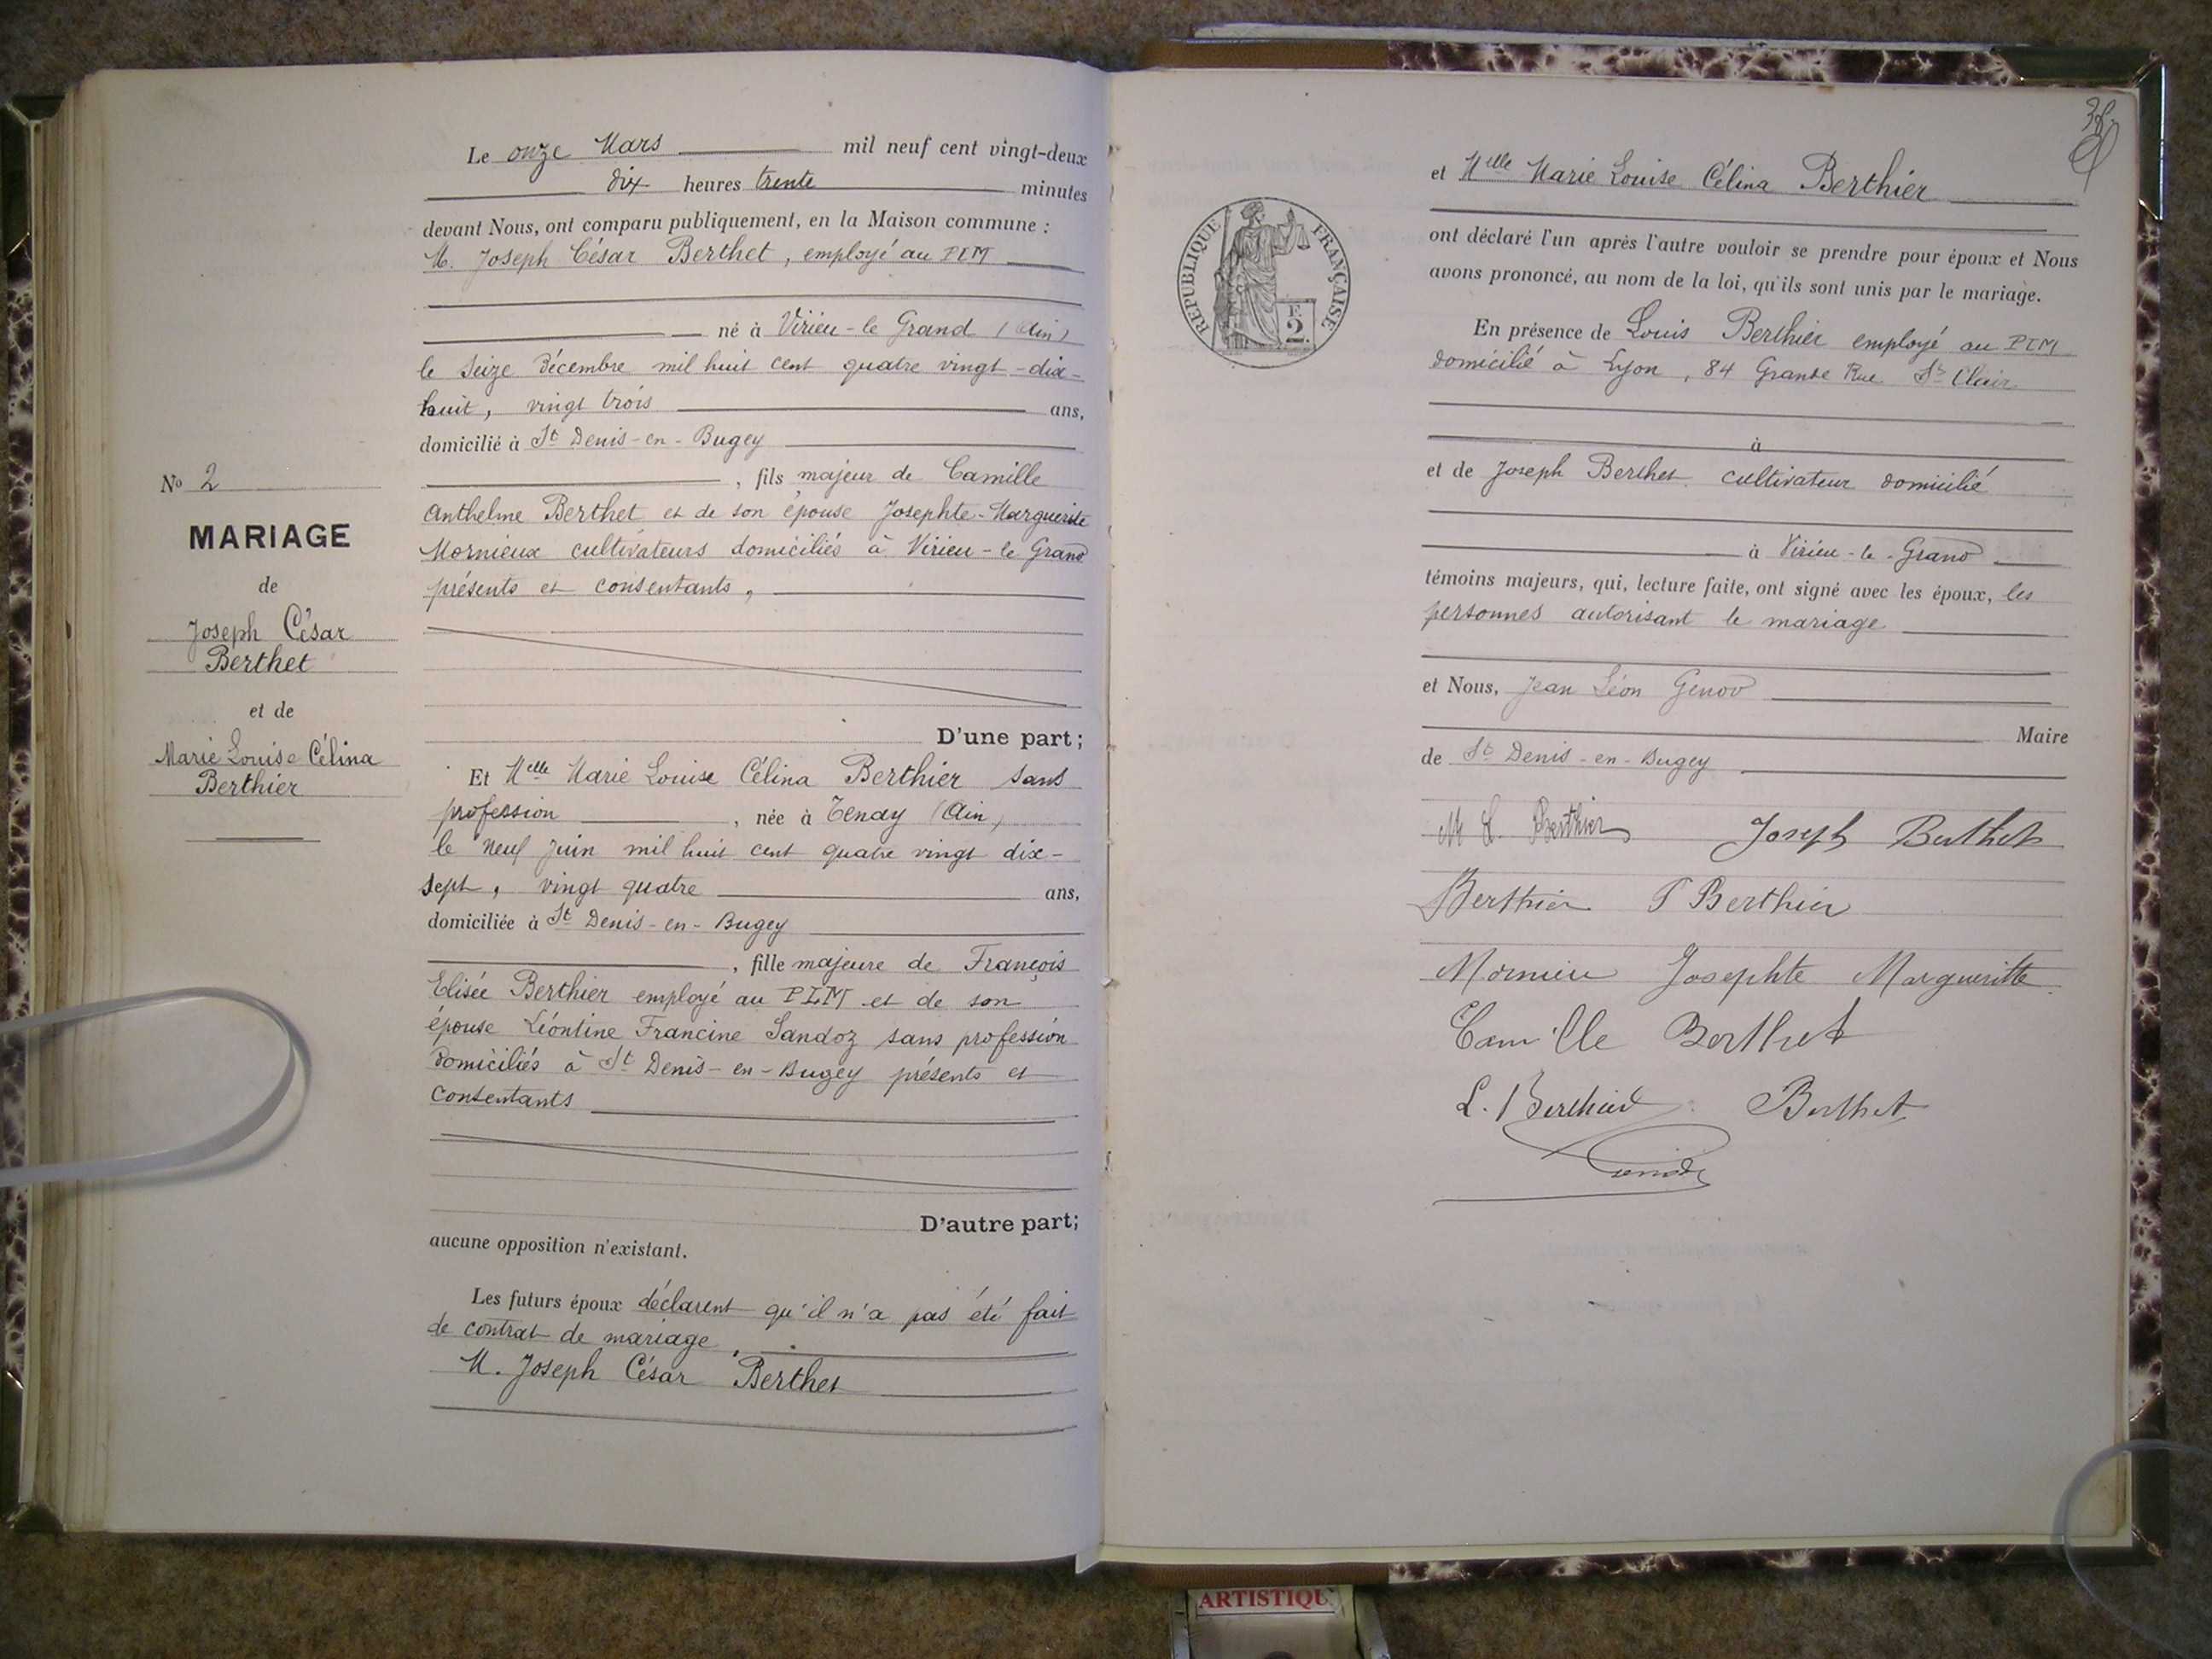 Le onze Mars mil neuf cent vingt-deux
dix heures trente minutes
devant Nous, ont comparu publiquement, en la Maison commune :
M. Joseph César Berthet, employé au PLM
né à Virieu-le Grand (Ain)
le seize Décembre mil huit cent quatre vingt-dix-
huit, vingt trois ans,
domicilié à St Denis-en-Bugey
, fils majeur de Camille
Anthelme Berthet et de son épouse Josephte-Marguerite
Mornieux cultivateurs domiciliés à Virieu-le Grand
présents et consentants,
D'une part;
Et Melle Marie Louise Célina Berthier sans
profession, née à Tenay (Ain)
le neuf Juin mil huit cent quatre vingt dix-
sept, vingt quatre ans,
domiciliée à St Denis-en-Bugey
, fille majeure de François
Elisée Berthier employé au PLM et de son
épouse Léontine Francine Sandoz sans profession
domiciliés à St Denis-en-Bugey présents et
consentants
D'autre part;
aucune opposition n'existant.
Les futurs époux déclarent qu'il n'a pas été fait
de contrat de mariage.
M. Joseph César Berthet
No 2
MARIAGE
de
Joseph César
Berthet
et de
Marie Louise Célina
Berthier
38
RÉPUBLIQUE FRANÇAISE
F.
2.
et Melle Marie Louise Célina Berthier
ont déclaré l'un après l'autre vouloir se prendre pour époux et Nous
avons prononcé, au nom de la loi, qu'ils sont unis par le mariage.
En présence de Louis Berthier employé au PLM
domicilié à Lyon, 84 Grande Rue St Clair
à
et de Joseph Berthet cultivateur domicilié
à Virieu-le-Grand
témoins majeurs, qui, lecture faite, ont signé avec les époux, les
personnes autorisant le mariage
et Nous, Jean Léon Genod
Maire
de St Denis-en-Bugey
M L Berthier Joseph Berthet
Berthier F Berthier
Mornieu Josephte Margueritte
Camille Berthet
L. Berthier Berthet
Genod
ARTISTIQU